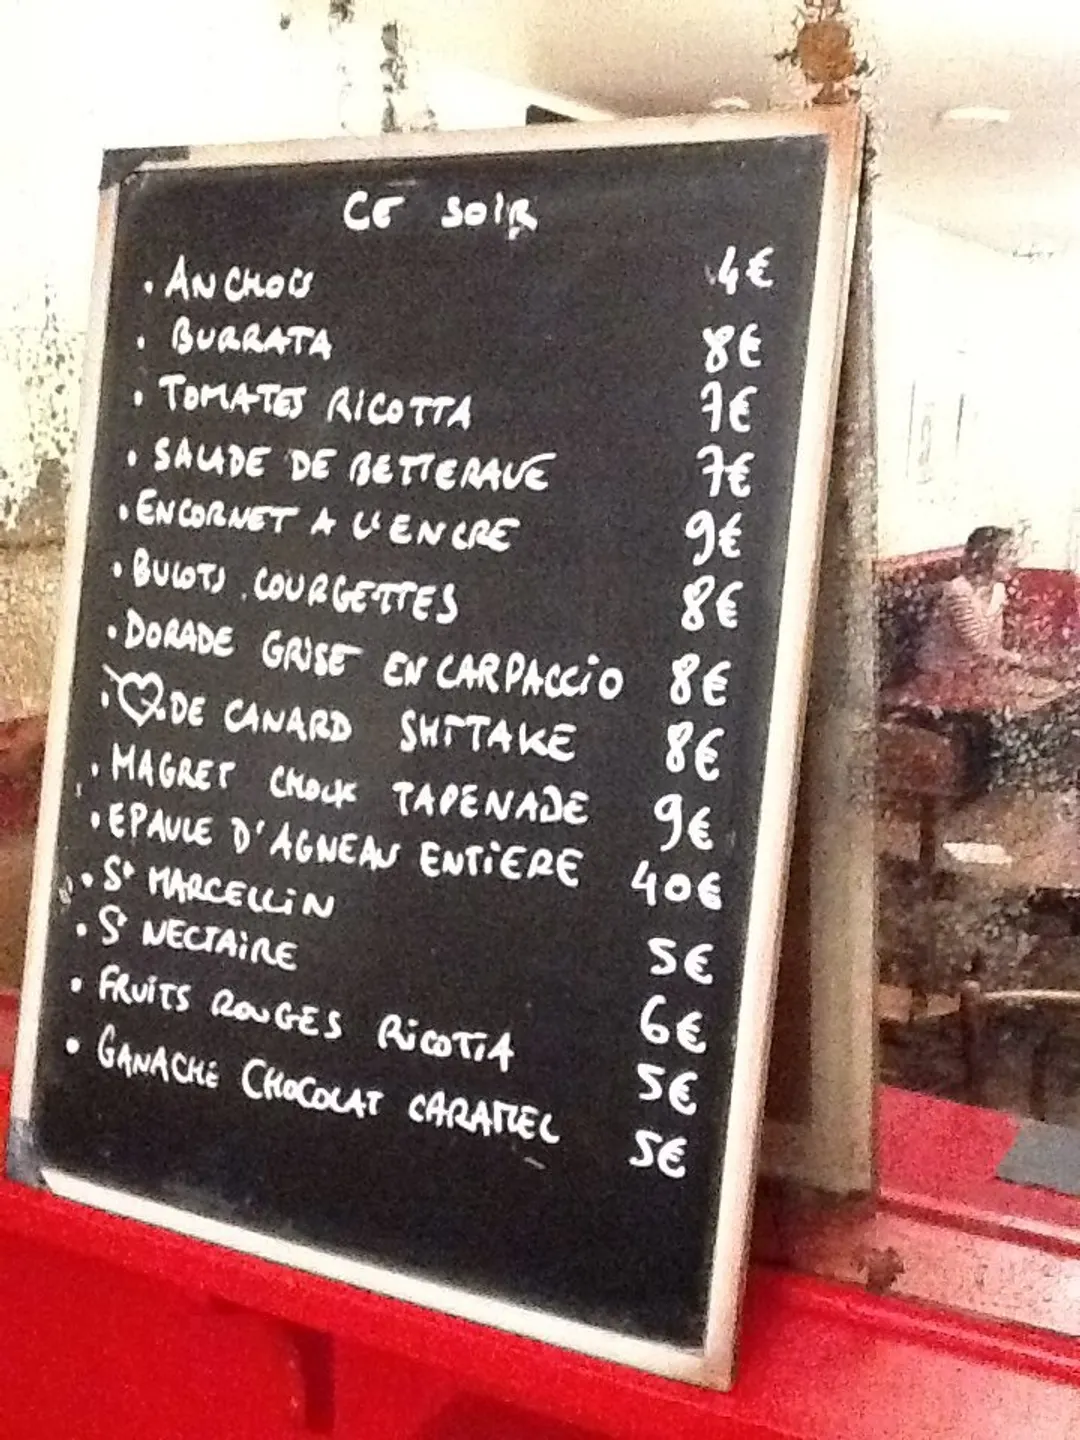 CE SOIR
. ANCHOIS 4€
. BURRATA 8€
. TOMATES RICOTTA 7€
. SALADE DE BETTERAVE 7€
. ENCORNET A L'ENCRE 9€
. BULOTS . COURGETTES 8€
. DORADE GRISE EN CARPACCIO 8€
. ♡ DE CANARD SHITTAKE 8€
. MAGRET TAPENADE 9€
. EPAULE D'AGNEAU ENTIERE 40€
. St MARCELLIN 5€
. St NECTAIRE 6€
. FRUITS ROUGES RICOTTA 5€
. GANACHE CHOCOLAT CARAMEL 5€